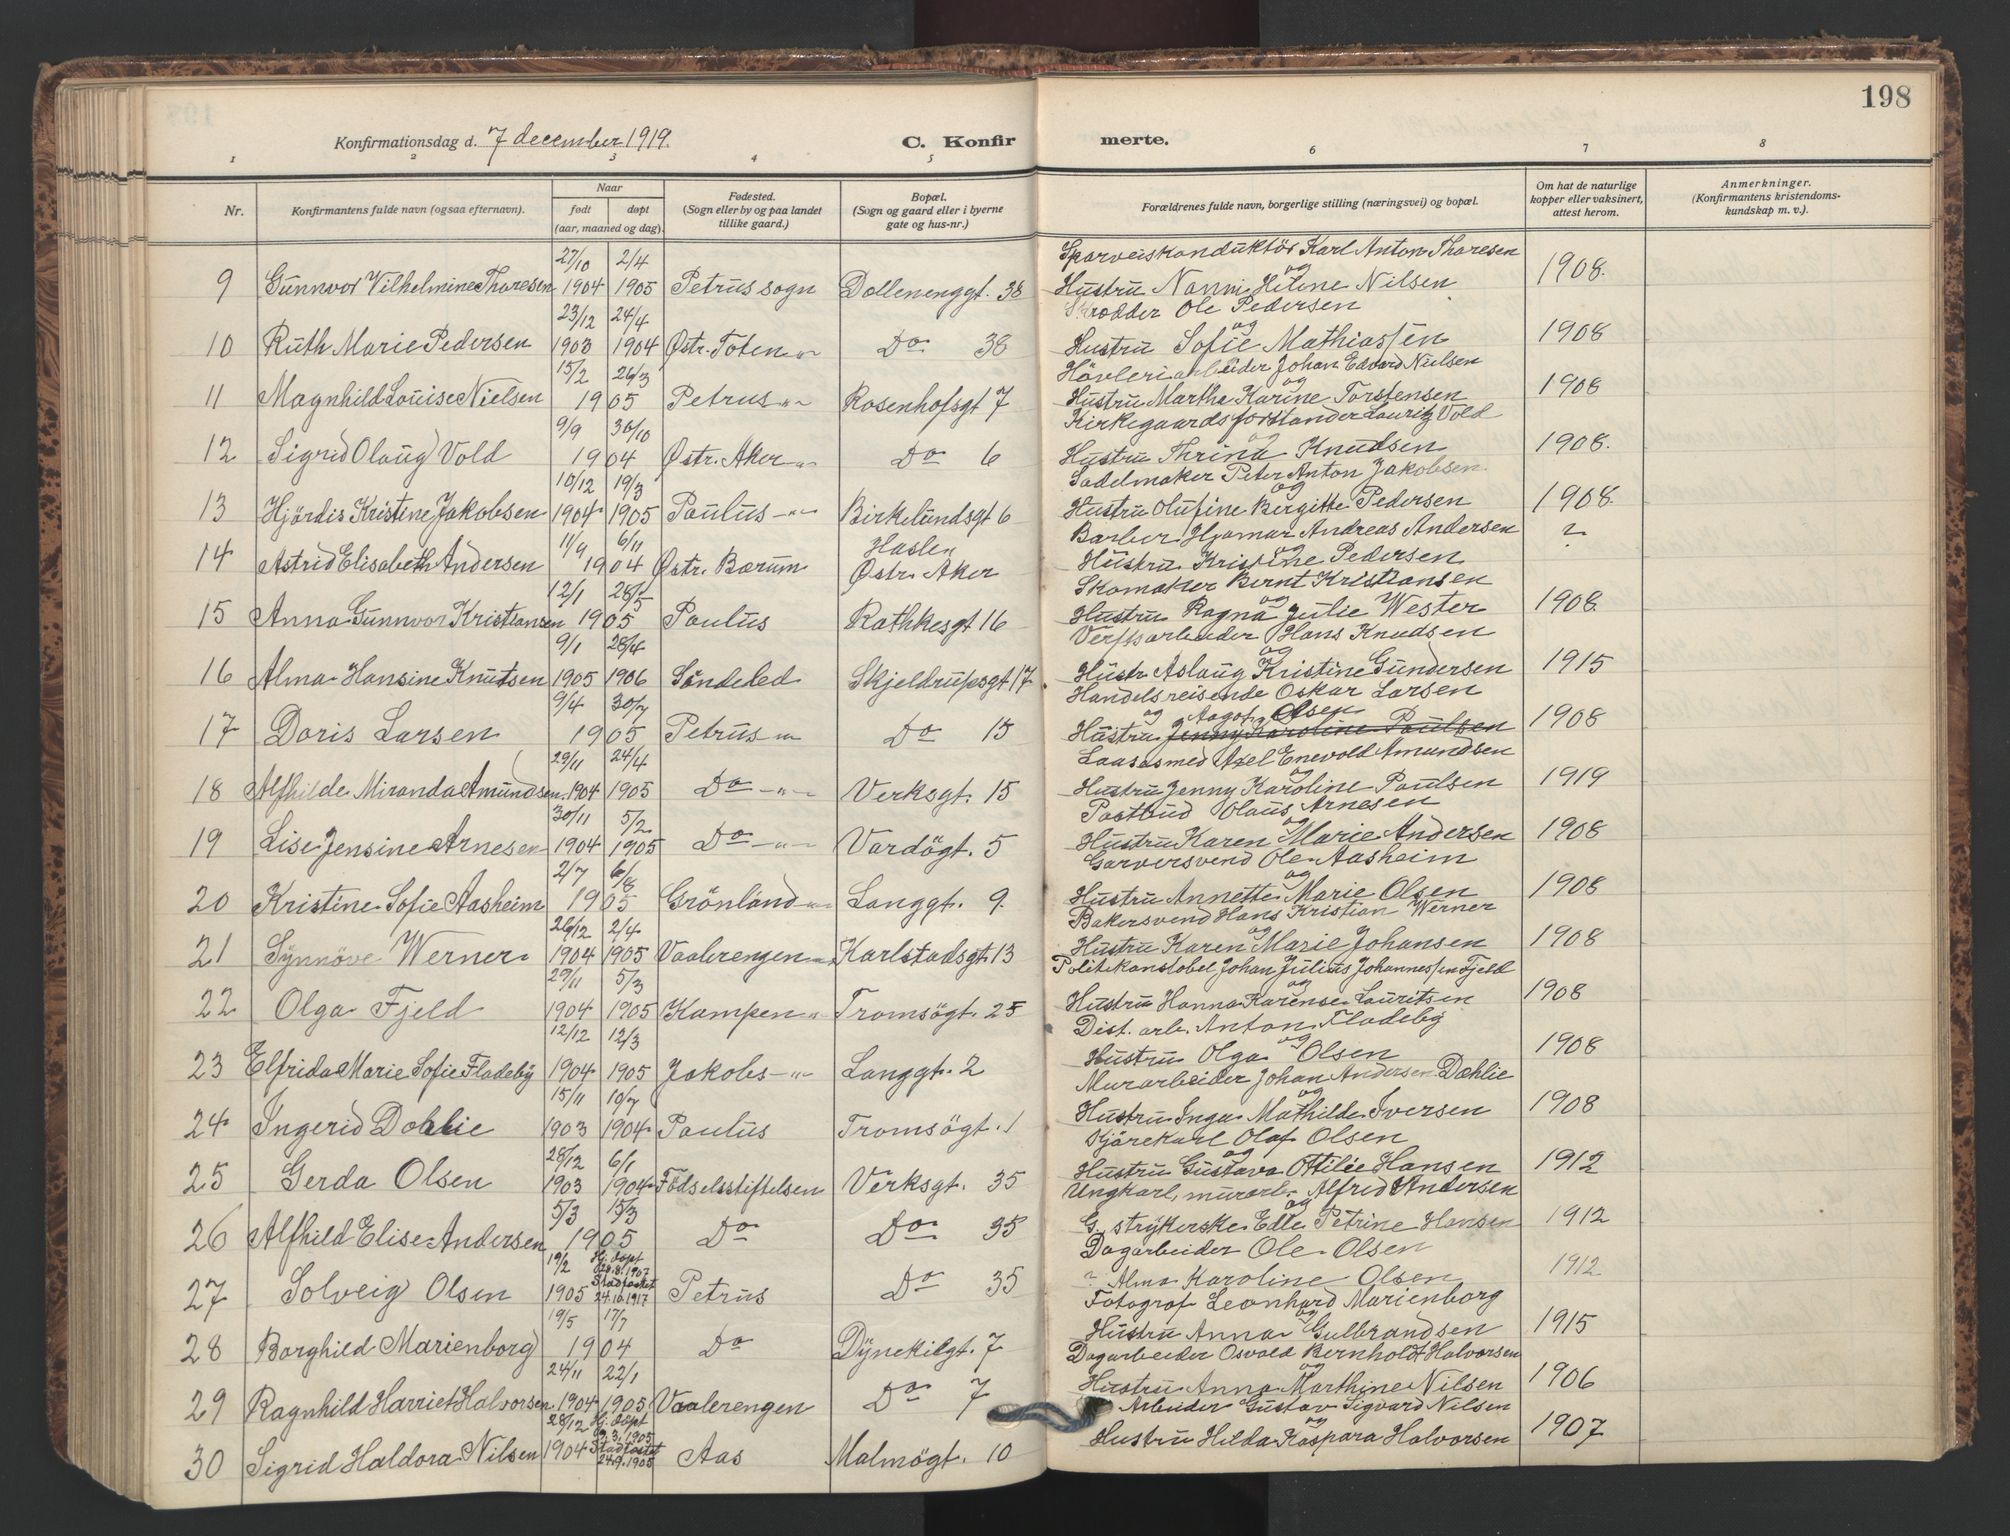 198
Konfirmationsdag d. 7 december 1919.
C. Konfirmerte.
1 2 3 4 5 6 7 8
Nr.
Konfirmantens fulde navn (ogsaa efternavn).
Naar
født døpt
(aar, maaned og dag).
Fødested.
(Sogn eller by og paa landet
tillike gaard.)
Bopæl.
(Sogn og gaard eller i byerne
gate og hus-nr.)
Forældrenes fulde navn, borgerlige stilling (næringsvei) og bopæl.
Om hat de naturlige
kopper eller vaksinert,
attest herom.
Anmerkninger.
(Konfirmantens kristendoms-
kundskap m. v.).
27/10 2/4 Sporveiskonduktör Karl Anton Thoresen
9 Gunnvor Vilhelmine Thoresen 1904 1905 Petrus sogn Dællenenggt. 38 og Hustru Nanni Helene Nilsen 1908.
23/12 24/4 Skrædder Ole Pedersen
10 Ruth Marie Pedersen 1903 1904 Østr. Toten -"- Do 38 og Hustru Sofie Mathiassen 1908
15/2 26/3 Hövleriarbeider Johan Edvard Nielsen
11 Magnhild Louise Nielsen 1905 Petrus -"- Rosenhofsgt 7 og Hustru Martha Karine Torstensen 1908
9/9 30/10 Kirkegaardsforstander Lauritz Vold
12 Sigrid Olaug Vold 1904 Østr. Aker -"- Do 6 og Hustru Thrina Knudsen 1908.
10/12 19/3 Sadelmaker Peter Anton Jakobsen
13 Hjördis Kristine Jakobsen 1904 1905 Paulus -"- Birkelundsgt 6 og Hustru Olufine Birgitte Pedersen 1908.
11/9 6/11 Haslen Barber Hjamar Andreas Andersen
14 Astrid Elisabeth Andersen 1904 Østr. Bærum Østr. Aker og Hustru Kristine Pedersen ?
12/1 28/5 Skomaker Bernt Kristiansen
15 Anna Gunnvor Kristiansen 1905 Paulus Rathkesgt 16 og Hustru Ragna Julie Wester 1908
9/1 28/4 Verftsarbeider Hans Knudsen
16 Alma Hansine Knutsen 1905 1906 Söndeled Skjeldrupsgt 17 og Hustr. Aslaug Kristine Gundersen 1915
9/4 30/7 Handelsreisende Oskar Larsen
17 Doris Larsen 1905 Petrus -"- Do 15 og Aagot Olsen Hustru Jenny Karoline Paulsen 1908
29/11 24/4 Laasesmed Axel Enevold Amundsen
18 Alfhilde Miranda Amundsen 1904 1905 Do -"- Verksgt. 15 og Hustru Jenny Karoline Paulsen 1919
30/11 5/2 Postbud Olaus Arnesen
19 Lise Jensine Arnesen 1904 1905 Do -"- Vardögt. 5 og Hustru Karen Marie Andersen 1908
2/7 6/8 Garversvend Ole Aasheim
20 Kristine Sofie Aasheim 1905 Grönland -"- Langgt. 9 og Hustru Annette Marie Olsen 1908
26/12 2/4 Bakersvend Hans Kristian Werner
21 Synnöve Werner 1904 1905 Vaalerengen -"- Karlstadsgt 13 og Hustru Karen Marie Johansen 1908
29/11 5/3 Politikonstabel Johan Julius Johannessen Fjeld
22 Olga Fjeld 1904 1905 Kampen -"- Tromsögt. 25 og Hustru Hanna Karense Lauritsen 1908
12/12 12/3 Dist. arb. Anton Fladeby
23 Elfrida Marie Sofie Fladeby 1904 1905 Jakobs -"- Langgt. 2 og Hustru Olga Olsen 1908
15/11 10/7 Murarbeider Johan Andersen Dæhlie
24 Ingerid Dæhlie 1903 1904 Paulus Tromsögt. 1 og Hustru Inga Mathilde Iversen 1908
28/12 6/1 Kjörekarl Olaf Olsen
25 Gerda Olsen 1903 1904 Födselsstiftelsen Verksgt. 35 og Hustru Gustava Ottilie Hansen 1912
5/3 15/3 Ungkarl, murarb. Alfred Andersen
26 Alfhild Elise Andersen 1905 Do Do 35 og G. strykerske Edle Petrine Hansen 1912
19/2 Hj. döpt Dagarbeider Ole Olsen
27 Solveig Olsen 1905 Stadfæstet 24.10.1917 Petrus Do 35 ? Alma Karoline Olsen 1912
19/5 17/7 Fotograf Leonhard Marienborg
28 Borghild Marienborg 1904 Do Dynekilgt. 7 og Hustru Anna Gulbrandsen 1915
24/11 22/1 Dagarbeider Osvald Bernholdt Halvorsen
29 Ragnhild Harriet Halvorsen 1904 1905 Vaalerengen Do 7 og Hustru Anna Marthine Nilsen 1906
28/12 Hj. döpt Arbeider Gustav Sigvard Nilsen
30 Sigrid Haldora Nilsen 1904 Stadfæstet 24.9.1905 Aas Malmögt. 10 og Hustru Hilda Kaspara Halvorsen 1907